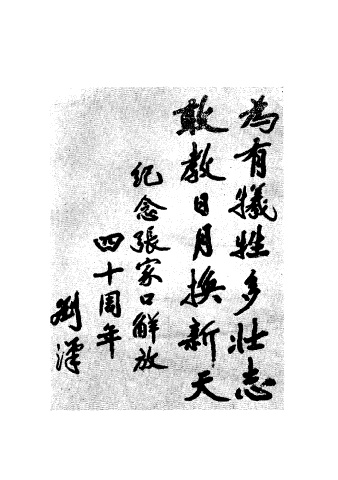 為有犧牲多壯志
敢教日月換新天
紀念張家口解放
四十周年
劉澤